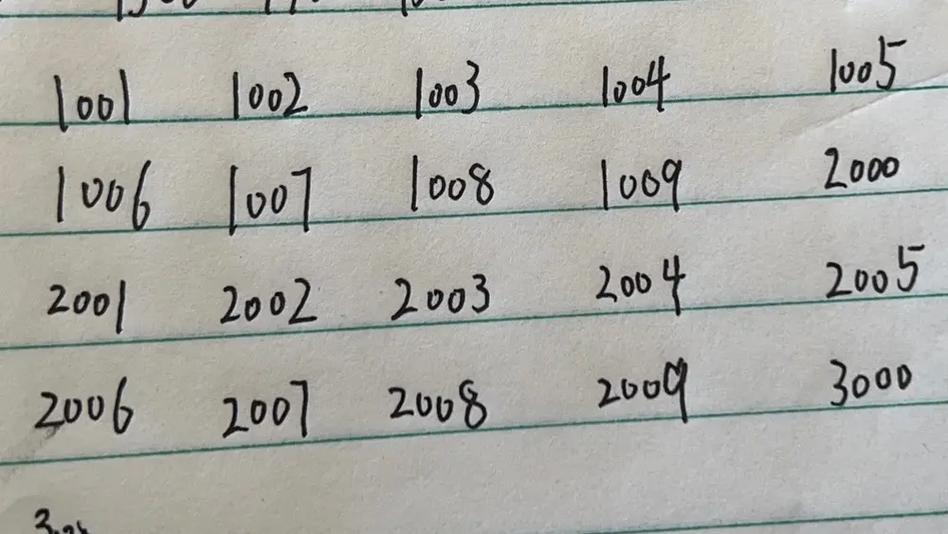 1001 1002 1003 1004 1005
1006 1007 1008 1009 2000
2001 2002 2003 2004 2005
2006 2007 2008 2009 3000